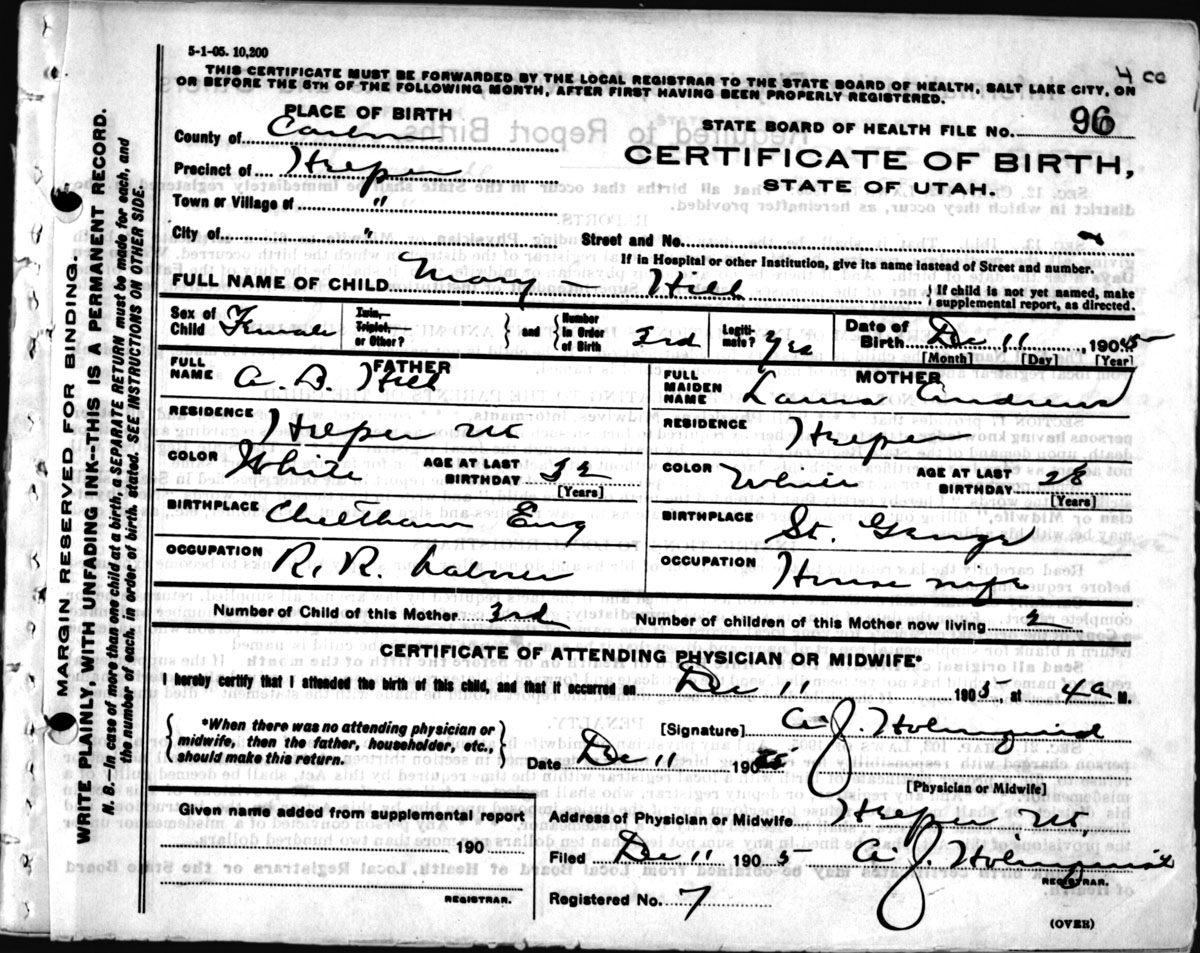 5-1-05. 10,200
4 cc
THIS CERTIFICATE MUST BE FORWARDED BY THE LOCAL REGISTRAR TO THE STATE BOARD OF HEALTH, SALT LAKE CITY, ON
OR BEFORE THE 5TH OF THE FOLLOWING MONTH, AFTER FIRST HAVING BEEN PROPERLY REGISTERED.
PLACE OF BIRTH
STATE BOARD OF HEALTH FILE NO. 96
County of Carbon
CERTIFICATE OF BIRTH,
Precinct of Helper
STATE OF UTAH.
Town or Village of "
City of "
Street and No.
If in Hospital or other Institution, give its name instead of Street and number.
FULL NAME OF CHILD Mary Hill
{If child is not yet named, make
supplemental report, as directed.
Sex of Child Female
Twin, Triplet, or Other?
and
Number in Order of Birth 3rd
Legitimate? Yes
Date of Birth Dec 11 1905
[Month] [Day] [Year]
FATHER
FULL NAME A. B. Hill
MOTHER
FULL MAIDEN NAME Laura Andrews
RESIDENCE Helper Ut
RESIDENCE Helper
COLOR White AGE AT LAST BIRTHDAY 32 [Years]
COLOR White AGE AT LAST BIRTHDAY 28 [Years]
BIRTHPLACE Cheltham Eng
BIRTHPLACE St. George
OCCUPATION R. R. Laborer
OCCUPATION House wife
Number of Child of this Mother 3rd
Number of children of this Mother now living 2
CERTIFICATE OF ATTENDING PHYSICIAN OR MIDWIFE*
I hereby certify that I attended the birth of this child, and that it occurred on Dec 11 1905, at 4 a M.
{*When there was no attending physician or
midwife, then the father, householder, etc.,
should make this return.}
[Signature] A. J. Holmquist
Date Dec 11 190
[Physician or Midwife]
Given name added from supplemental report
190
REGISTRAR.
Address of Physician or Midwife Helper Ut.
Filed Dec 11 1905 A. J. Holmquist
REGISTRAR.
Registered No. 7
(OVER)
MARGIN RESERVED FOR BINDING.
WRITE PLAINLY, WITH UNFADING INK--THIS IS A PERMANENT RECORD.
N. B.--In case of more than one child at a birth, a SEPARATE RETURN must be made for each, and
the number of each, in order of birth, stated. SEE INSTRUCTIONS ON OTHER SIDE.